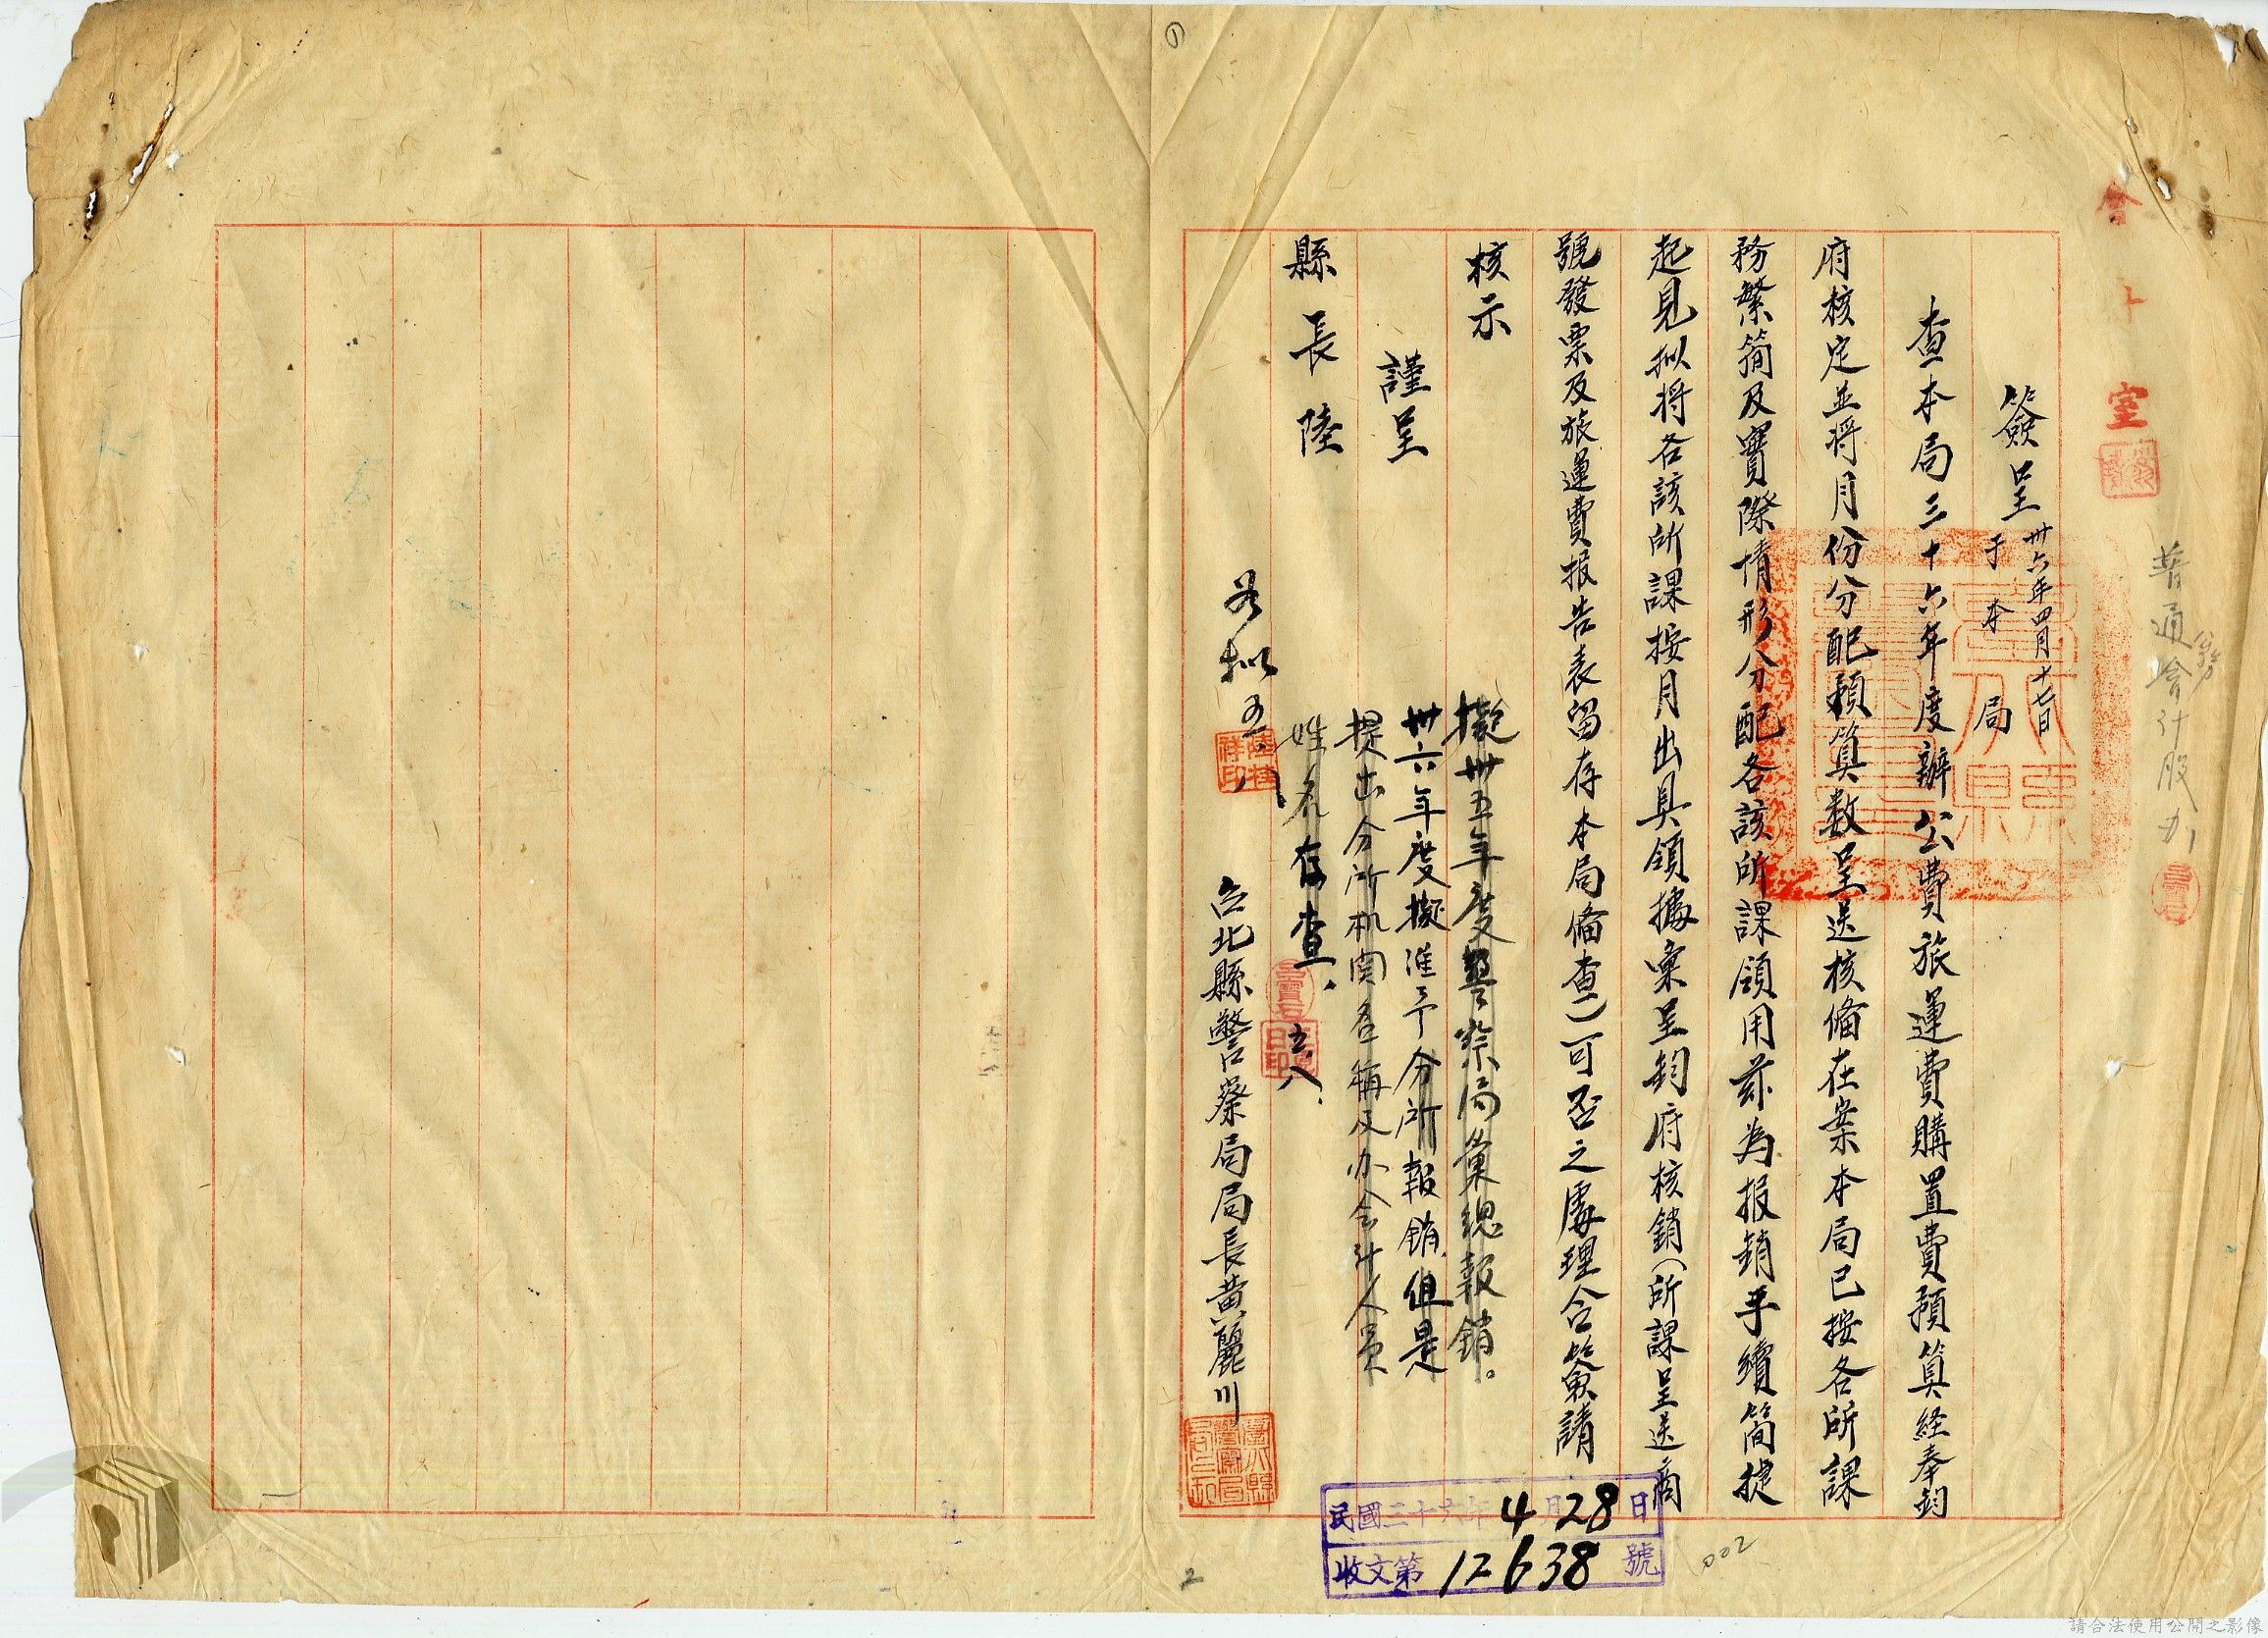 會計室
普通會計股办
簽呈 卅六年四月十七日
于本局
查本局三十六年度辦公費旅運費購置費預算経奉鈞
府核定並将月份分配預算数呈送核俻在案本局已按各所課
務繁簡及實際情形分配各該所課領用茲為报銷手續简捷
起見拟将各該所課按月出具領據彙呈鈞府核銷(所課呈送商
號發票及旅運費报告表留存本局俻查)可否之處理合簽請
核示
謹呈
縣長陸
擬卅五年度警察局彙總報銷。
卅六年度擬准予分所報銷但是
提出分所机関名稱及办会计人員
姓名存查.
五、八.
如拟 五、八
台北縣警察局局長黃麗川
民國三十六年4月28日
收文第12638號
002
2
請合法使用公開之影像